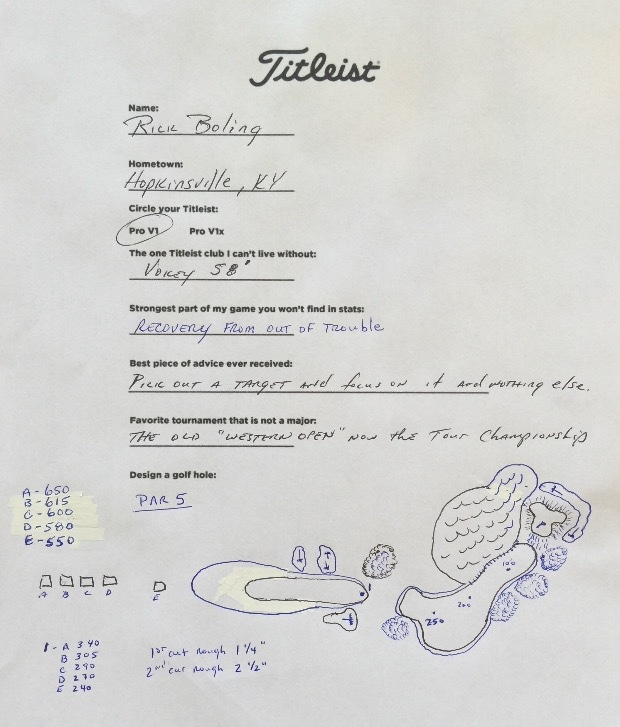 Titleist
Name:
Rick Boling
Hometown:
Hopkinsville, KY
Circle your Titleist:
Pro V1 Pro V1x
The one Titleist club I can't live without:
Vokey 58°
Strongest part of my game you won't find in stats:
Recovery from out of Trouble
Best piece of advice ever received:
Pick out a target and focus on it and nothing else.
Favorite tournament that is not a major:
The old "Western Open" now the Tour Championship
Design a golf hole:
PAR 5
A - 650
B - 615
C - 600
D - 580
E - 550
A B C D E
1
250 200 100
1 - A 340
B 305
C 290
D 270
E 240
1st cut rough 1 1/4"
2nd cut rough 2 1/2"